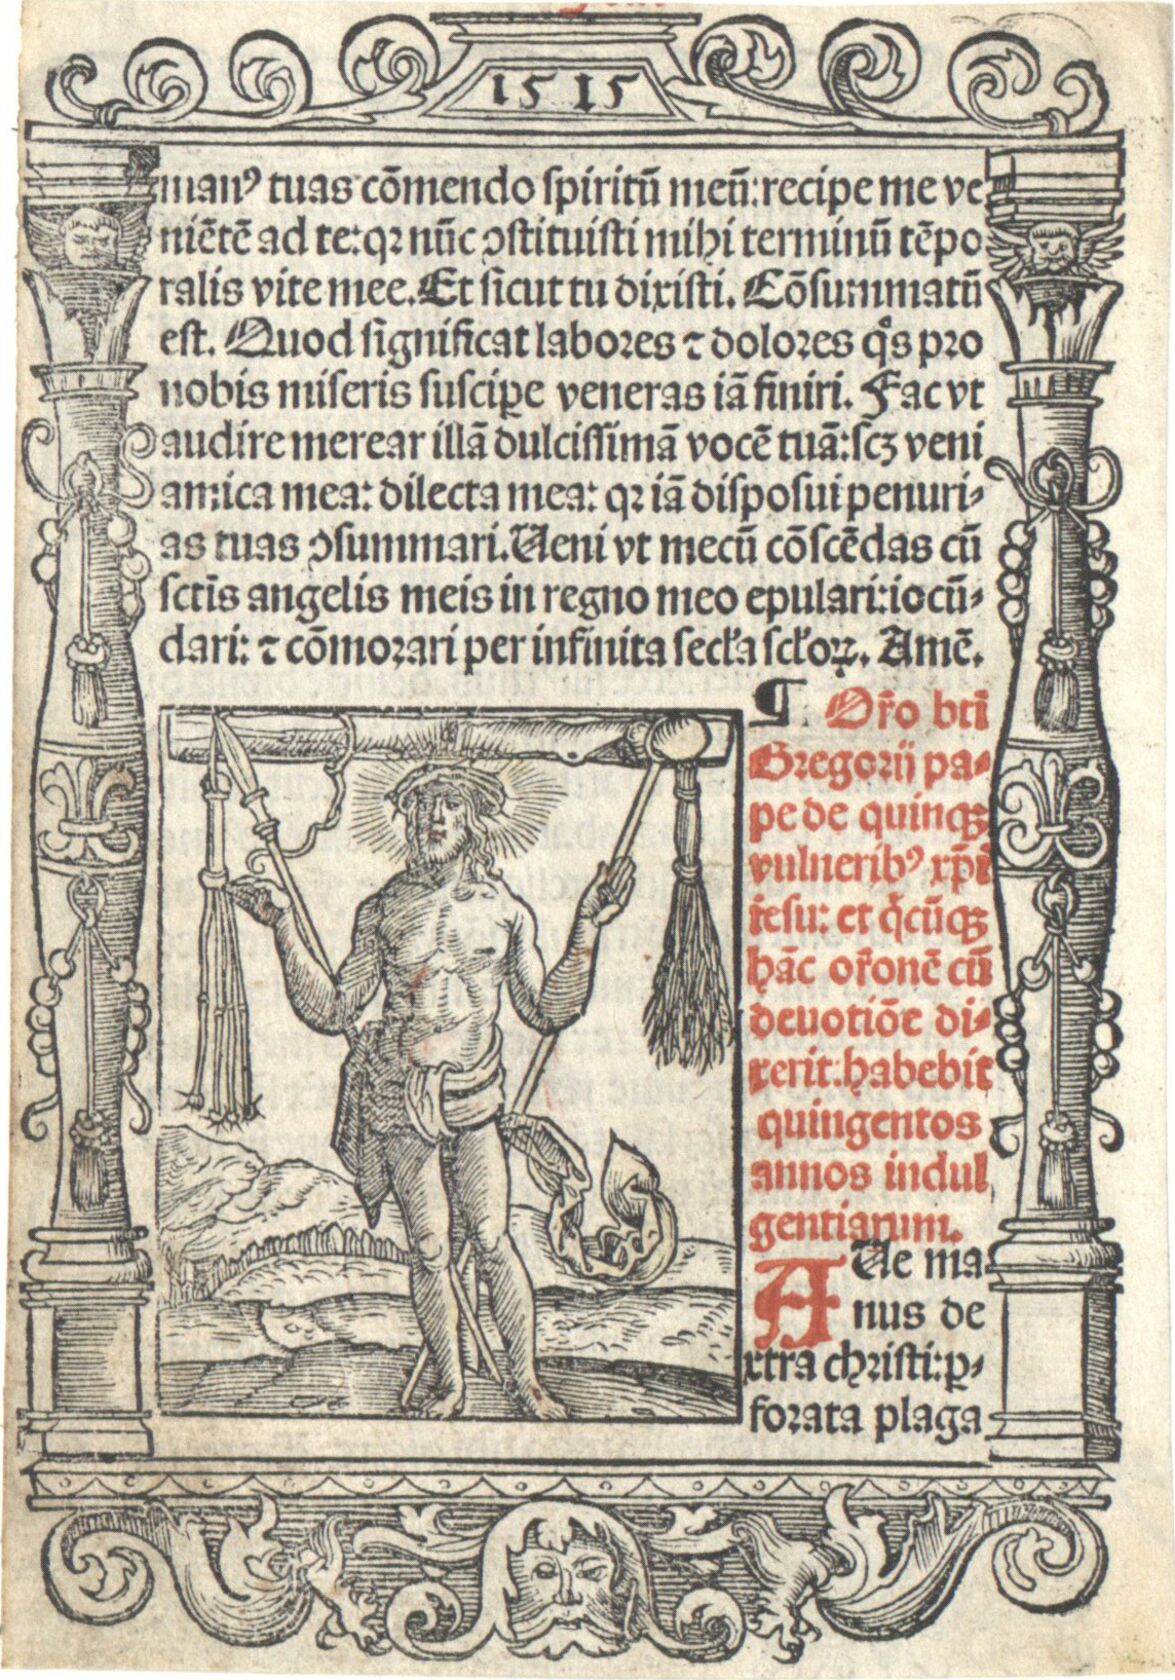 1515
manꝰ tuas cōmendo ſpiritū meū:recipe me ve
niētē ad te:qꝛ nūc ꝯſtituiſti mihi terminū tēpo
ralis vite mee.Et ſicut tu dixiſti. Cōſummatū
eſt. Quod ſignificat laboꝛes ⁊ doloꝛes q̊s pꝛo
nobis miſeris ſuſciꝑe veneras iā finiri. Fac vt
audire merear illā dulciſſimā vocē tuā:ſcꝫ veni
amica mea: dilecta mea: qꝛ iā diſpoſui penuri⸗
as tuas ꝯſummari.Ueni vt mecū cōſcēdas cū
ſctīs angelis meis in regno meo epulari:iocū⸗
dari: ⁊ cōmoꝛari per infinita ſecła ſcłoꝝ. Amē.
¶ Or̄o btī
Gregorij pa⸗
pe de quinqꝫ
vulneribꝰ xp̄i
ieſu: et q̇cūqꝫ
hāc or̄onē cū
deuotiōe di⸗
xerit:habebit
quingentos
annos indul
gentiarum.
AUe ma
nus de
xtra chꝛiſti:ꝑ⸗
foꝛata plaga